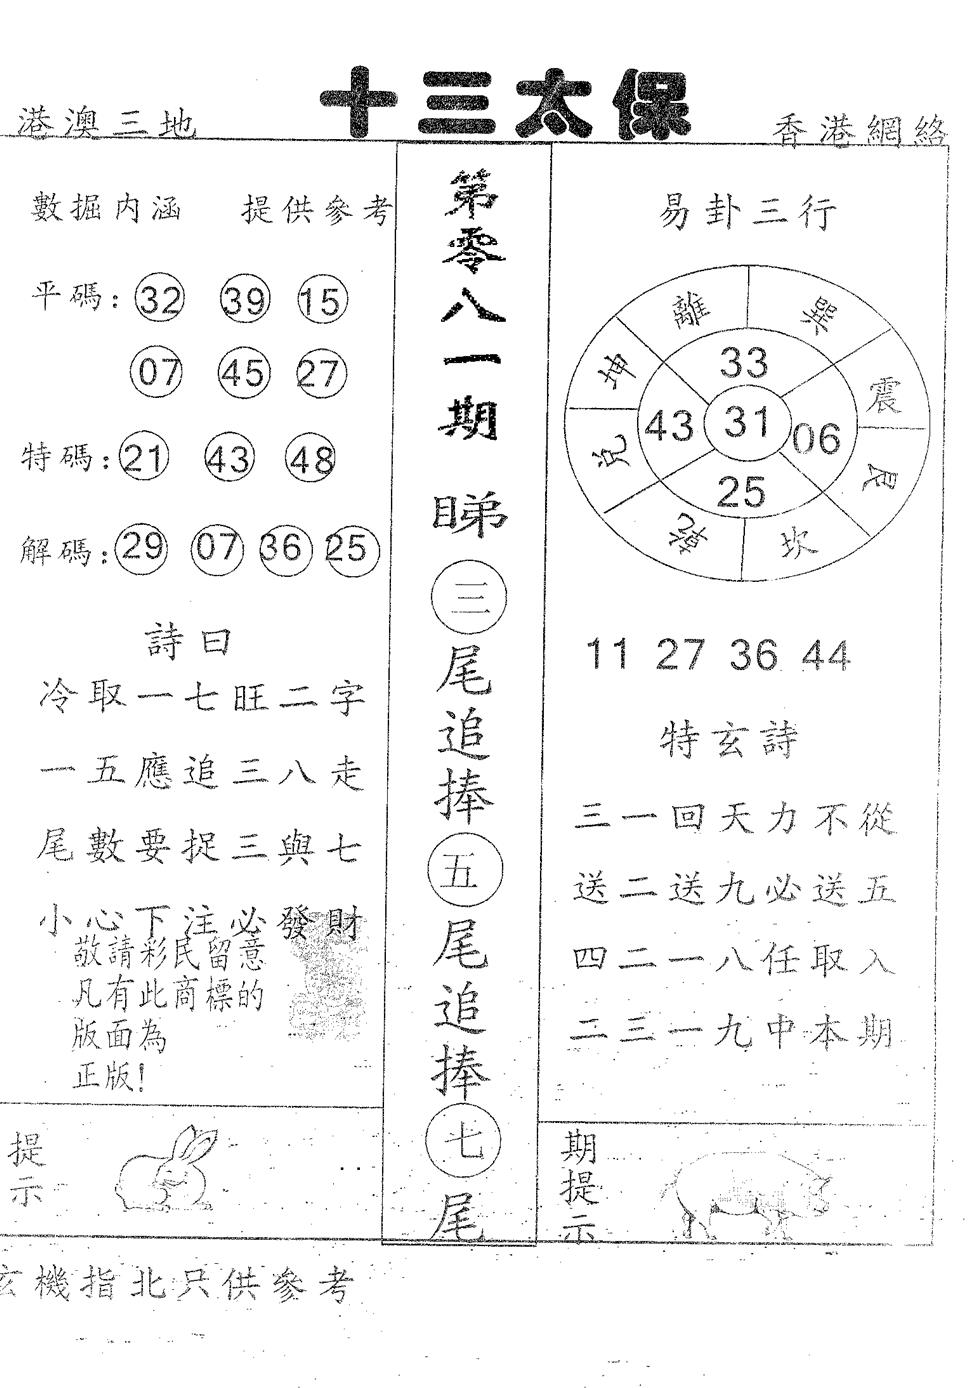 十三太保
港澳三地
香港網絡
數掘内涵 提供參考
平碼: 32 39 15
07 45 27
特碼: 21 43 48
解碼: 29 07 36 25
詩曰
冷取一七旺二字
一五應追三八走
尾數要捉三與七
小心下注必發財
敬請彩民留意
凡有此商標的
版面為
正版!
提示
第零八一期
睇三尾追捧五尾追捧七尾
易卦三行
離 巽
坤 33 震
兑 43 31 06 艮
25
乾 坎
11 27 36 44
特玄詩
三一回天力不從
送二送九必送五
四二一八任取入
二三一九中本期
期提示
玄機指北只供參考